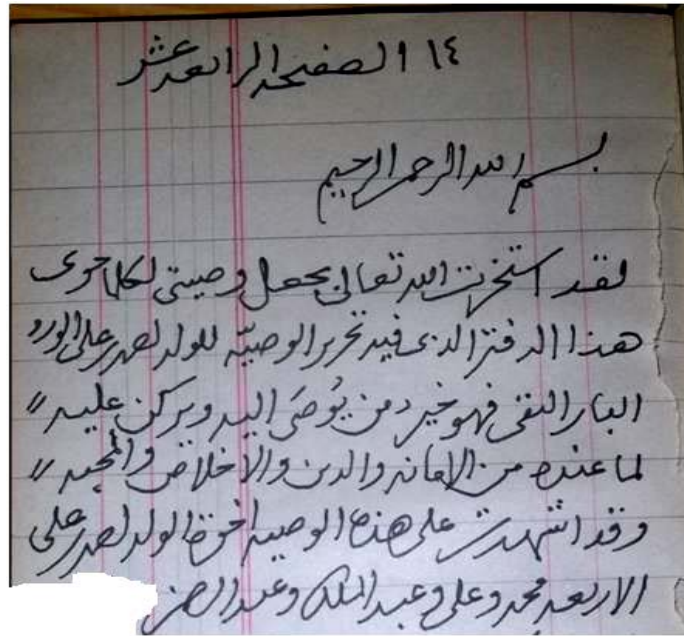 ١٤ الصفحة الرابعة عشر
بسم الله الرحمن الرحيم
لقد استخرت الله تعالى بجعل وصيتي لكلما حوى
هذا الدفتر الذي فيه تحرير الوصيّه للولد
البار التقي فهو خير من يُوصَى اليه ويركن عليه "
لما عنده من الامانه والدين والاخلاص والمحبه "
وقد اشهدت على هذه الوصيه اخوة الولد
الاربعه محمد وعلي وعبدالملك وعبد